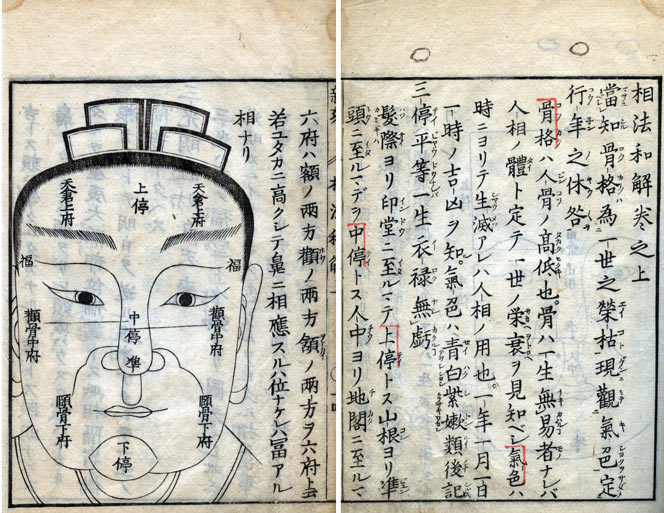 相法和解巻之上
當知骨格為一世之榮枯現觀氣色定
行年之休咎
骨格ハ人骨ノ高低也。骨ハ一生無易者ナレバ
人相ノ體ト定テ一世ノ栄衰ヲ見知ベシ氣色ハ
時ニヨリテ生滅アレハ人相ノ用也。一年一月一日
一時ノ吉凶ヲ知。氣色ハ青白紫嫩類後記
三停平等一生衣禄無虧
髮際ヨリ印堂ニ至ルマテ上停トス山根ヨリ準
頭ニ至ルマデヲ中停トス人中ヨリ地閣ニ至ルマ
六府ハ額ノ両方顴ノ両方頷ノ両方ヲ六府ト云
若ユタカニ高クシテ鼻ニ相應スルハ位ナケレバ冨アル
相ナリ
天倉上府
上停
天倉上府
福
福
顴骨中府
中停
準
顴骨中府
頤骨下府
頤骨下府
下停